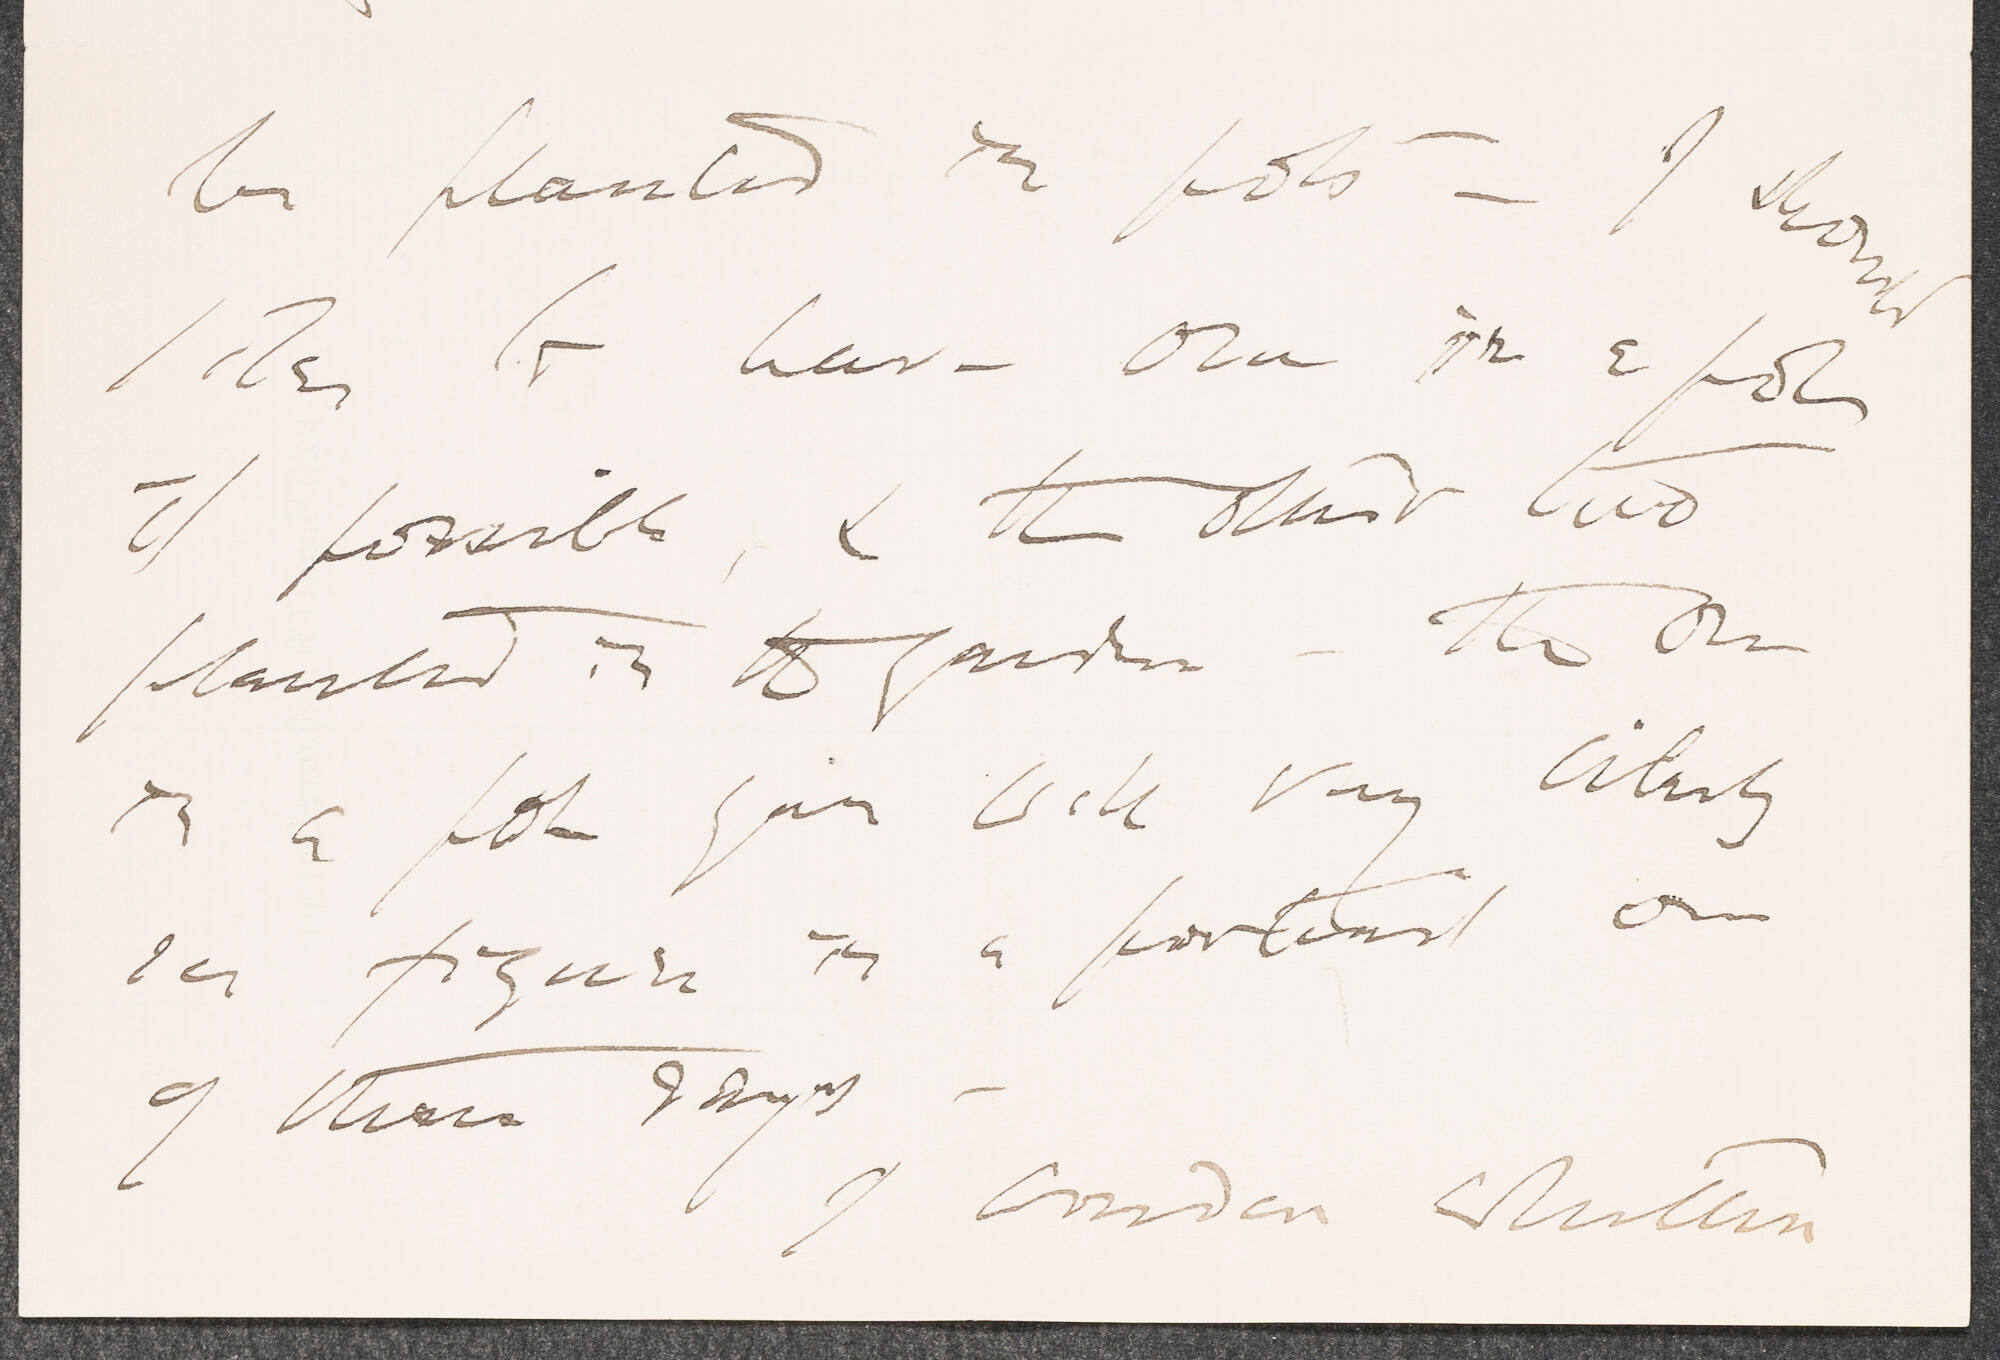 be planted in pots — I should
like to have one in a pot
if possible, & the other two
planted in the garden — the one
in a pot you will very likely
see figure in a portrait one
of these days —
I wonder whether